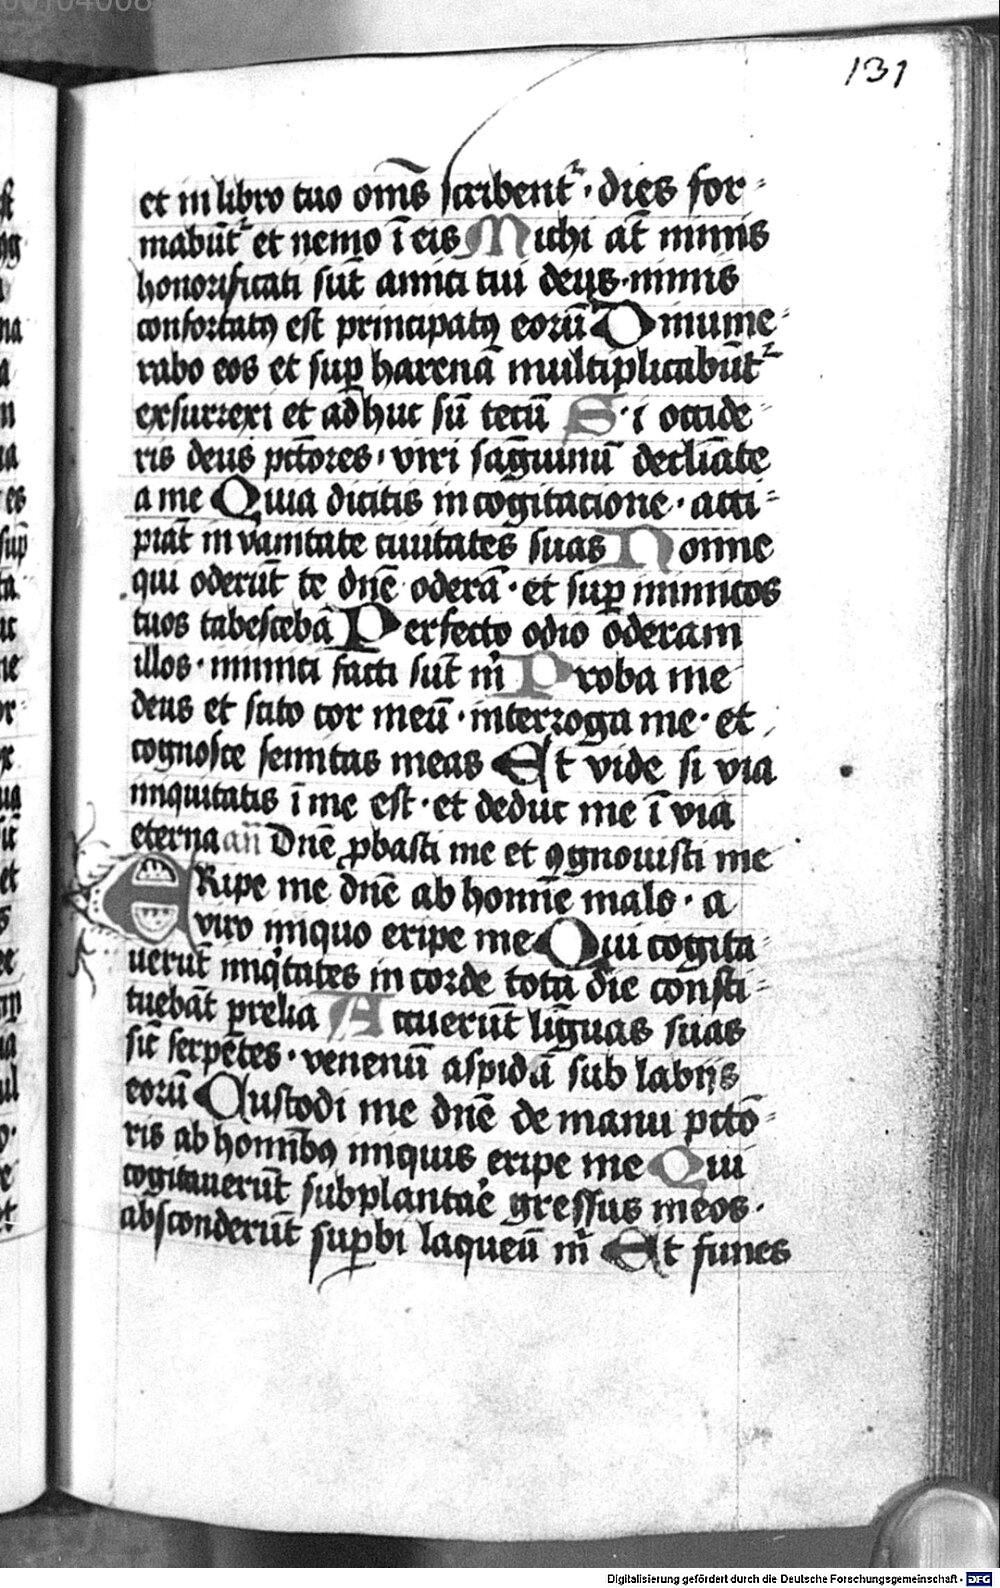 00104008
131
et in libro tuo om̄s scribent᷑ · dies for⸗
mabūt᷑ et nemo ī eis Michi aūt nimis
honorificati sūt amici tui deus · nimis
confortatꝯ est principatꝯ eorū Dinume⸗
rabo eos et suꝑ harenā multiplicabūt᷑
exsurrexi et adhuc sū tecū Si occide⸗
ris deus pctōres · viri sāguinū declīate
a me Quia dicitis in cogitacione · acci⸗
piāt in vanitate ciuitates suas Nonne
qui oderūt te dn̄e oderā · et suꝑ inimicos
tuos tabescebā Perfecto odio oderam
illos · inimici facti sūt m̄ Proba me
deus et scito cor meū · interroga me · et
cognosce semitas meas Et vide si via
iniquitatis ī me est · et deduc me ī via
eterna an̄ Dn̄e ꝓbasti me et ꝯgnouisti me
ERipe me dn̄e ab homīe malo · a
viro iniquo eripe me Qui cogita⸗
uerūt iniqͥtates in corde tota die consti⸗
tuebāt prelia Acuerūt līguas suas
sic̄ serpētes · venenū aspidū sub labijs
eorū Custodi me dn̄e de manu pctō⸗
ris ab homībꝯ iniquis eripe me Qui
cogitauerūt subplantar̄e gressus meos ·
absconderūt suꝑbi laqueū m̄ Et funes
Digitalisierung gefördert durch die Deutsche Forschungsgemeinschaft - DFG